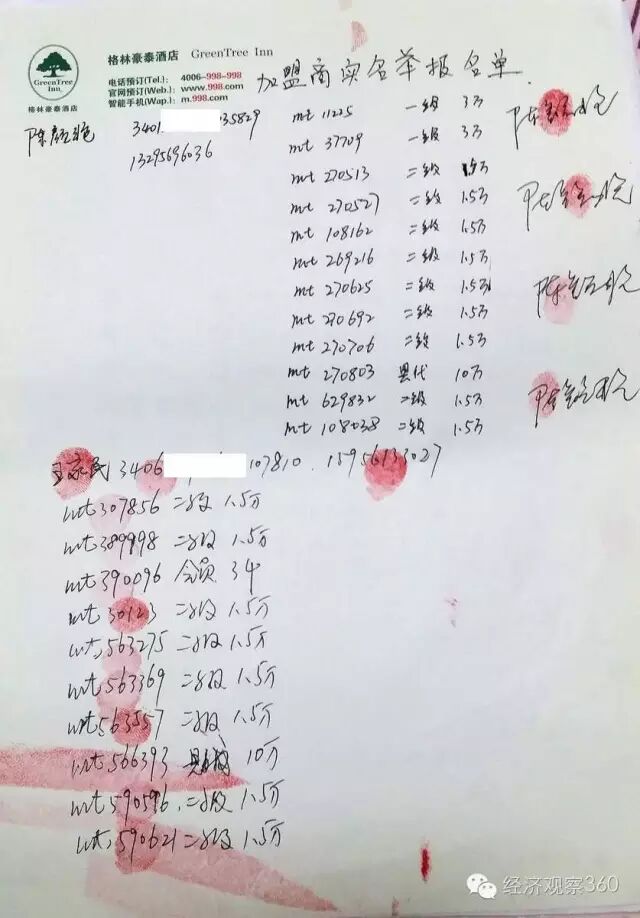 格林豪泰酒店 GreenTree Inn
GreenTree
Inn
格林豪泰酒店
电话预订(Tel.): 4006-998-998
官网预订(Web.): www.998.com
智能手机(Wap.): m.998.com
加盟商实名举报名单
3401 135829
13295696036
mt 11225 一级 3万
mt 37709 一级 3万
mt 270513 二级
mt 270527 二级 1.5万
mt 108162 二级 1.5万
mt 269216 二级 1.5万
mt 270625 二级 1.5万
mt 270692 二级 1.5万
mt 270706 二级 1.5万
mt 270803 县代 10万
mt 629832 二级 1.5万
mt 108038 二级 1.5万
王家民 3406 107810 . 15956133027
mt 307856 二级 1.5万
mt 389998 二级 1.5万
mt 390096 会员 34
mt 30123 二级 1.5万
mt 563275 二级 1.5万
mt 563369 二级 1.5万
mt 563557 二级 1.5万
mt 566393 10万
mt 590596 二级 1.5万
mt 590621 二级 1.5万
经济观察360